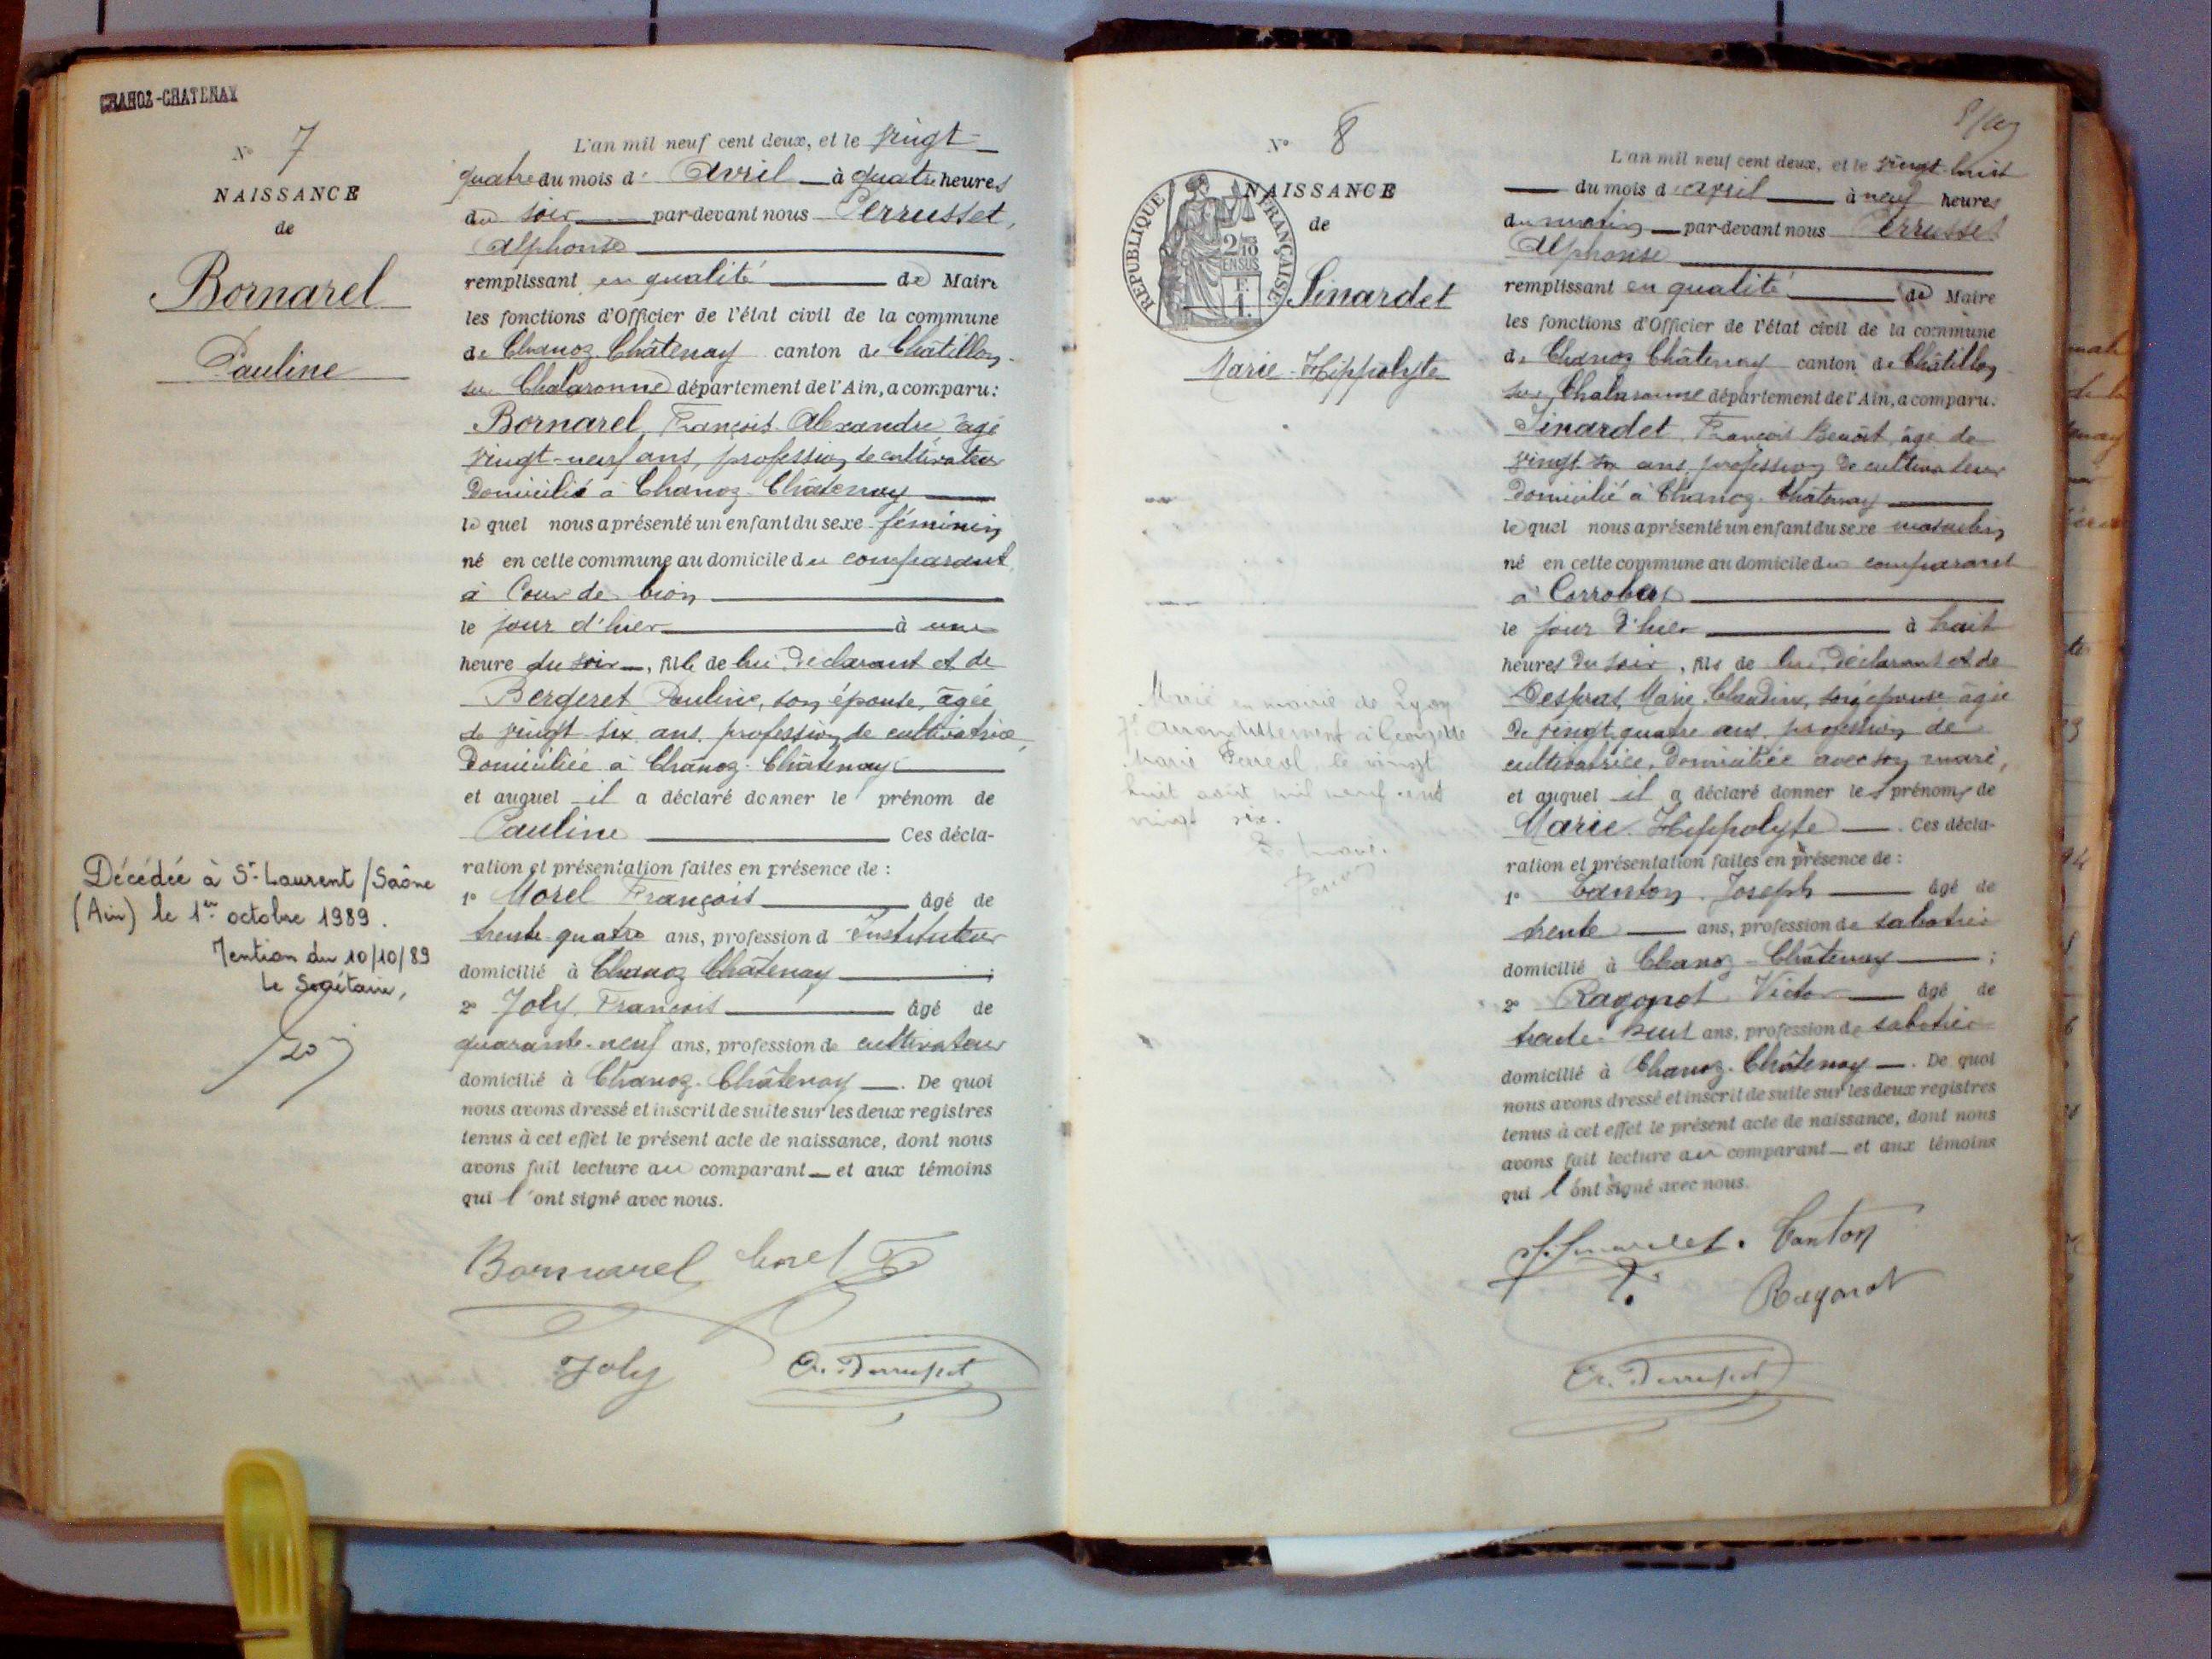 CHANOZ-CHATENAY
N° 7
NAISSANCE
de
Bornarel
Pauline
Décédée à St-Laurent/Saône
(Ain) le 1er octobre 1989.
Mention du 10/10/89
Le Secrétaire,
L'an mil neuf cent deux, et le vingt
quatre du mois d' Avril à quatre heures
du soir par-devant nous Perrusset,
Alphonse
remplissant en qualité de Maire
les fonctions d'Officier de l'état civil de la commune
de Chanoz-Châtenay canton de Châtillon-
sur Chalaronne département de l'Ain, a comparu:
Bornarel, François Alexandre âgé
vingt-neuf ans, profession de cultivateur
domicilié à Chanoz-Châtenay
lequel nous a présenté un enfant du sexe féminin
né en cette commune au domicile du comparant,
à Cour de bion
le jour d'hier à une
heure du soir, fille de lui, déclarant et de
Bergeret Pauline, son épouse, âgée
de vingt six ans, profession de cultivatrice,
domiciliée à Chanoz-Châtenay
et auquel il a déclaré donner le prénom de
Pauline Ces décla-
ration et présentation faites en présence de :
1° Morel François âgé de
trente quatre ans, profession d'Instituteur
domicilié à Chanoz Châtenay ;
2° Joly, François âgé de
quarante-neuf ans, profession de cultivateur
domicilié à Chanoz-Châtenay. De quoi
nous avons dressé et inscrit de suite sur les deux registres
tenus à cet effet le présent acte de naissance, dont nous
avons fait lecture au comparant et aux témoins
qui l'ont signé avec nous.
Bornarel Morel F
Joly A. Perrusset
N° 8
NAISSANCE
de
RÉPUBLIQUE FRANÇAISE
2/10 EN SUS
F. 1.
Sinardet
Marie-Hippolyte
Marié en mairie de Lyon
arrondissement à Georgette
Marie le vingt
huit août mil neuf cent
vingt six.
L'an mil neuf cent deux, et le vingt-huit
du mois d'avril à neuf heures
du matin par-devant nous Perrusset
Alphonse
remplissant en qualité de Maire
les fonctions d'Officier de l'état civil de la commune
de Chanoz Châtenay canton de Châtillon
sur Chalaronne département de l'Ain, a comparu:
Sinardet, François Benoît, âgé de
vingt six ans, profession de cultivateur
domicilié à Chanoz-Châtenay
lequel nous a présenté un enfant du sexe masculin
né en cette commune au domicile du comparant
à Corrobert
le jour d'hier à huit
heures du soir, fils de lui, déclarant et de
Desbras, Marie Claudine, son épouse âgée
de vingt quatre ans, profession de
cultivatrice, domiciliée avec son mari,
et auquel il a déclaré donner les prénoms de
Marie Hippolyte. Ces décla-
ration et présentation faites en présence de :
1° Canton Joseph âgé de
trente ans, profession de sabotier
domicilié à Chanoz-Châtenay ;
2° Ragonot Victor âgé de
trente-neuf ans, profession de sabotier
domicilié à Chanoz-Châtenay. De quoi
nous avons dressé et inscrit de suite sur les deux registres
tenus à cet effet le présent acte de naissance, dont nous
avons fait lecture au comparant et aux témoins
qui l'ont signé avec nous.
Sinardet. Canton
Ragonot
A. Perrusset